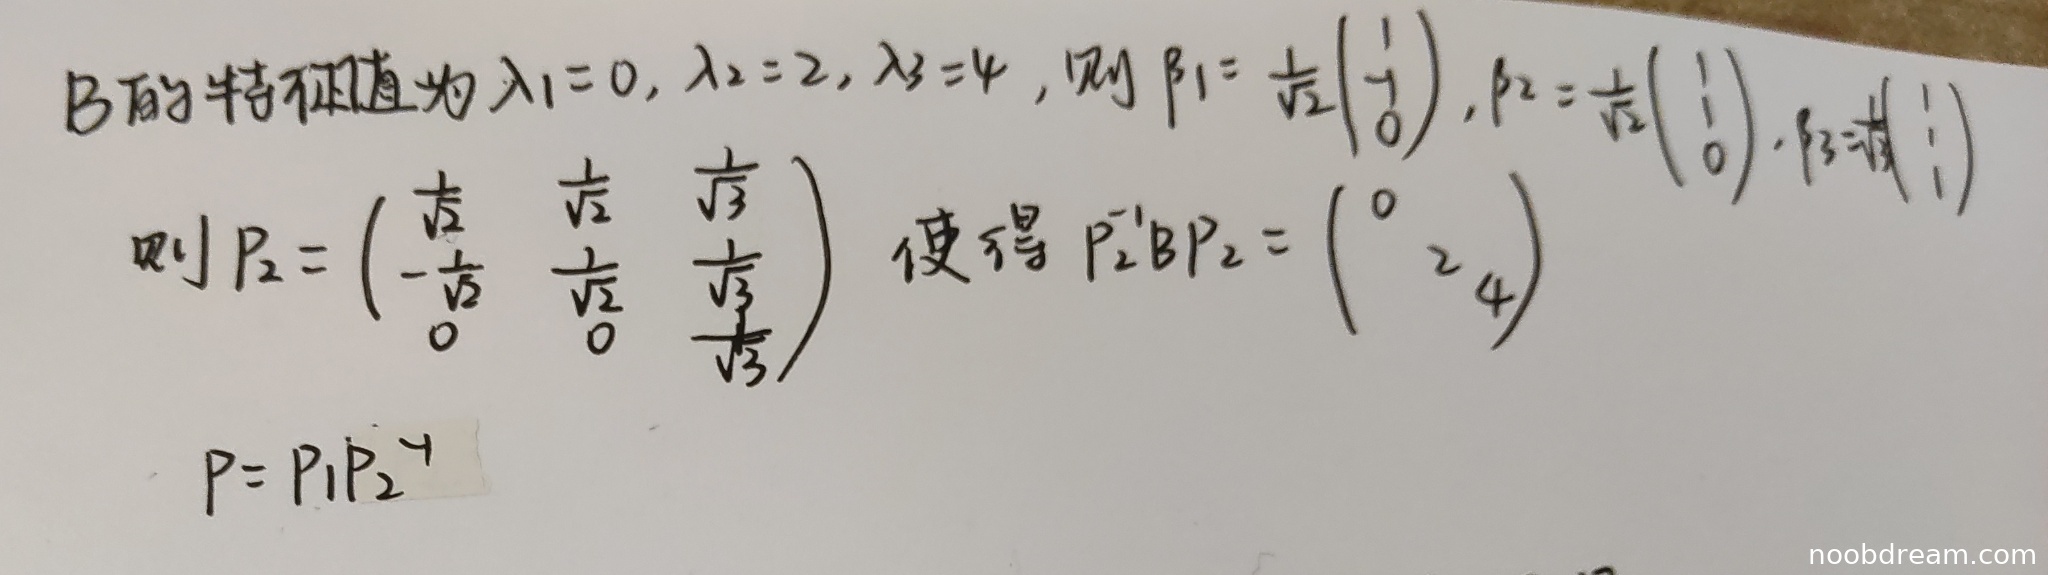 B的特征值为 λ1=0, λ2=2, λ3=4, 则 β1= 1/√2 (1 -1 0), β2= 1/√2 (1 1 0), β3= 1/√3 (1 1 1)
则 P₂ = ( 1/√2 1/√2 1/√3
-1/√2 1/√2 1/√3
0 0 1/√3 ) 使得 P₂⁻¹BP₂ = ( 0 2 4 )
P= P₁P₂⁻¹
noobdream.com